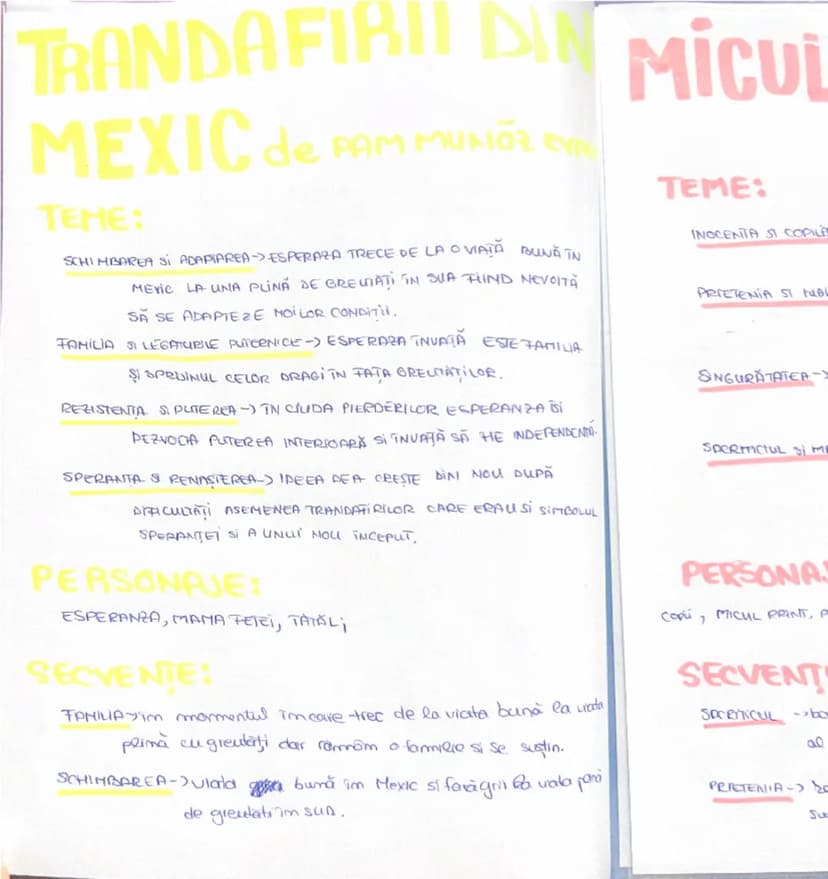 TRANDAFIRII DIN
MEXIC de PAM MUNÕZ
TEME:
SCHIMBAREA SI ADAPTAREA -> ESPERAZA TRECE DE LA O VIAȚĂ BUNĂ ÎN
MEXIC LA UNA PLINĂ DE GREUTĂȚI ÎN SUA FIIND NEVOITĂ
SĂ SE ADAPTEZE NOILOR CONDIȚII.
FAMILIA SI LEGATURILE PUTERNICE -> ESPERAZA ÎNVAȚĂ ESTE FAMILIA
ȘI SPRIJINUL CELOR DRAGI ÎN FAȚA GREUTĂȚILOR.
REZISTENȚA SI PUTEREA -> ÎN CIUDA PIERDERILOR ESPERANZA ISI
DEZVOLTA PUTEREA INTERIOARĂ SI ÎNVAȚĂ SĂ FIE INDEPENDENTĂ.
SPERANTA SI RENAȘTEREA -> IDEEA DE A CREȘTE DIN NOU DUPĂ
DIFICULTĂȚI ASEMENEA TRANDAFIRILOR CARE ERAU SI SIMBOLUL
SPERANȚEI SI A UNUI NOU ÎNCEPUT.
PERSONAJE:
ESPERANZA, MAMA FETEI, TATĂL;
SECVENȚE:
FAMILIA -> în momentul în care trec de la viata bună la viata
plină cu greutăți dar rămân o familie si se susțin.
SCHIMBAREA -> viata bună in Mexic si fără griji la viata
de greutati in SUA.
MICUL
TEME:
INOCENTA SI
PRIETENIA SI
SINGURĂTATEA ->
SI
PERSONAJ
COPII, MICUL PRINT, P
SECVENȚ
->
al
PRIETENIA ->